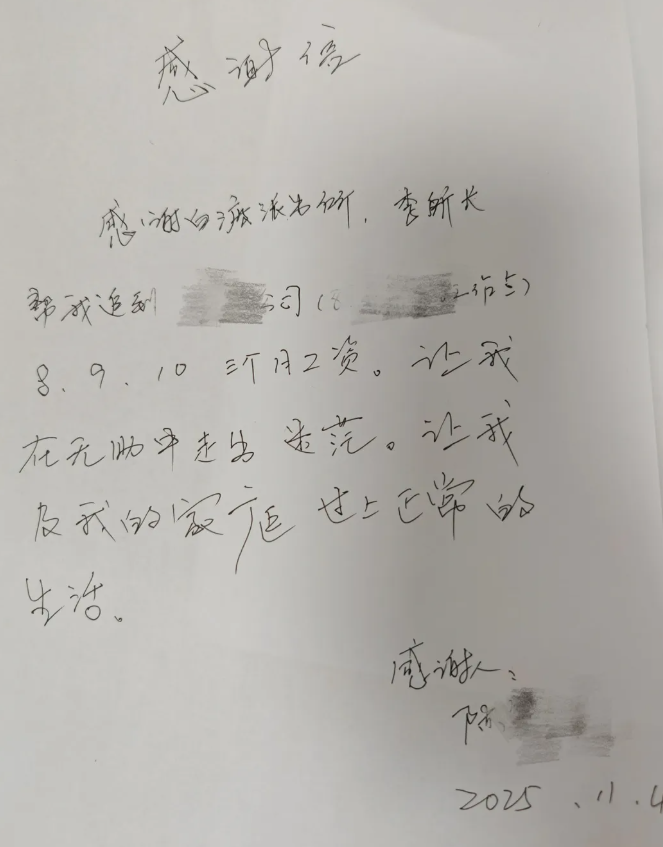 感谢信
感谢白濮派出所,李所长
帮我追到 公司(8 工作点)
8.9.10 三个月工资。让我
在无助中走出迷茫。让我
及我的家庭过上正常的
生活。
感谢人:
陈
2025.11.4